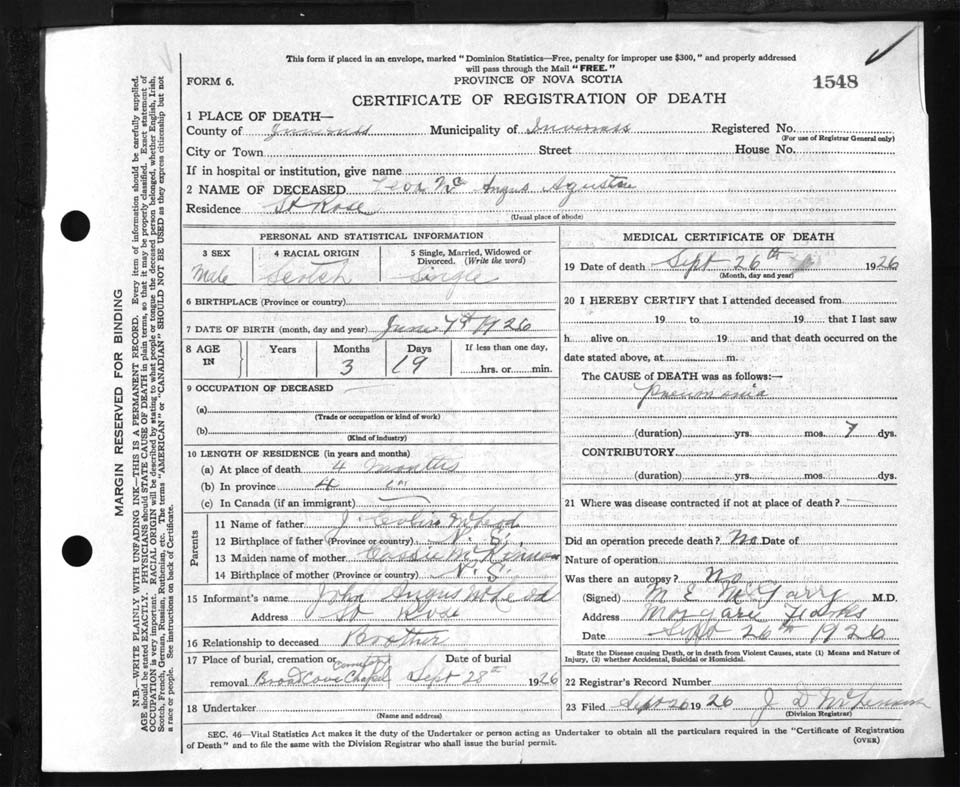 This form if placed in an envelope, marked "Dominion Statistics—Free, penalty for improper use $300," and properly addressed
will pass through the Mail "FREE."
FORM 6.
PROVINCE OF NOVA SCOTIA
1548
CERTIFICATE OF REGISTRATION OF DEATH
1 PLACE OF DEATH—
County of Inverness Municipality of Inverness Registered No.
(For use of Registrar General only)
City or Town Street House No.
If in hospital or institution, give name
2 NAME OF DECEASED Angus
Residence St Rose
(Usual place of abode)
PERSONAL AND STATISTICAL INFORMATION
3 SEX 4 RACIAL ORIGIN 5 Single, Married, Widowed or Divorced. (Write the word)
Male Scotch Single
6 BIRTHPLACE (Province or country)
7 DATE OF BIRTH (month, day and year) June 7th 1926
8 AGE IN Years Months Days If less than one day,
3 19 hrs. or min.
9 OCCUPATION OF DECEASED
(a)
(Trade or occupation or kind of work)
(b)
(Kind of industry)
10 LENGTH OF RESIDENCE (in years and months)
(a) At place of death 4 months
(b) In province 4 "
(c) In Canada (if an immigrant)
Parents
11 Name of father J. Colin McLeod
12 Birthplace of father (Province or country) N. S.
13 Maiden name of mother Cassie McKinnon
14 Birthplace of mother (Province or country) N. S.
15 Informant's name John Angus McLeod
Address St Rose
16 Relationship to deceased Brother
17 Place of burial, cremation or removal Date of burial
Cemetery
Broad Cove Chapel Sept 28th 1926
18 Undertaker
(Name and address)
MEDICAL CERTIFICATE OF DEATH
19 Date of death Sept 26th 1926
(Month, day and year)
20 I HEREBY CERTIFY that I attended deceased from
19 to 19 that I last saw
h alive on 19 and that death occurred on the
date stated above, at m.
The CAUSE of DEATH was as follows:—
Pneumonia
(duration) yrs. mos. 7 dys.
CONTRIBUTORY
(duration) yrs. mos. dys.
21 Where was disease contracted if not at place of death?
Did an operation precede death? No Date of
Nature of operation
Was there an autopsy? No
(Signed) M E McGarry M.D.
Address Margaree Forks
Date Sept 26th 1926
State the Disease causing Death, or in death from Violent Causes, state (1) Means and Nature of
Injury, (2) whether Accidental, Suicidal or Homicidal.
22 Registrar's Record Number
23 Filed Sept 1926 J D
(Division Registrar)
SEC. 46—Vital Statistics Act makes it the duty of the Undertaker or person acting as Undertaker to obtain all the particulars required in the "Certificate of Registration
of Death" and to file the same with the Division Registrar who shall issue the burial permit.
(OVER)
MARGIN RESERVED FOR BINDING
N.B.—WRITE PLAINLY WITH UNFADING INK—THIS IS A PERMANENT RECORD. Every item of information should be carefully supplied.
AGE should be stated EXACTLY. PHYSICIANS should STATE CAUSE OF DEATH in plain terms, so that it may be properly classified. Exact statement of
OCCUPATION is very important. RACIAL ORIGIN will be described by stating to what people or tongue the deceased person belonged, whether English, Irish,
Scotch, French, German, Russian, Ruthenian, etc. The terms "AMERICAN" or "CANADIAN" SHOULD NOT BE USED as they express citizenship but not
a race or people. See instructions on back of Certificate.